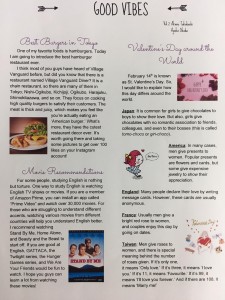 GOOD VIBES
Best Burgers in Tokyo
One of my favorite foods is hamburgers. Today
I am going to introduce the best hamburger
restaurant ever.
I think most of you guys have heard of Village
Vanguard before, but did you know that there is a
restaurant named "Village Vanguard Diner"? It is a
chain restaurant, so there are many of them in
Tokyo, Nishi-Ogikubo, Kichijoji, Ogikubo,
Shimokitazawa, and so on. They focus on cooking
high quality burgers to satisfy their customers. The
meat is thick and juicy, which makes you feel like
you're actually eating an
"American burger." What's
more, they have the cutest
restaurant decor ever. It's
worth going there and taking
some pictures to get over 100
likes on your Instagram
account!
Movie Recommendations
For some people, studying English is nothing
but torture. One way to study English is watching
English TV shows or movies. If you are a member
of Amazon Prime, you can install an app called
"Prime Video" and watch over 30,000 movies. For
those who are struggling to understand different
accents, watching various movies from different
countries will help you understand English better.
I recommend watching
Stand By Me, Home Alone,
and Beauty and the Beast to
start off. If you are good at
English, GATTACA, the
Twilight series, the Hunger
Games series, and Me
You? Friends would be fun to
watch. I hope you guys can
learn a lot from watching
those movies!
STAND BY ME
Valentine's Day around the
World
February 14th is known as
St. Valentine's Day. So,
I would like to explain how
this day differs around the
world.
Japan: It is common for girls to give chocolates to
boys to show their love. But also, girls give
chocolates with no romantic association to friends,
colleagues, and even to their bosses (this is called
tomo-choco or giri-choco).
America: In many cases,
men give presents to women.
Popular presents are flowers
and cards, but some give expensive
jewelry to show their
love.
England: Many people declare their love by writing
message cards. However, these cards are usually
anonymous.
France: Usually men give a
bright red rose to women,
and couples enjoy this day by
going on dates.
Taiwan: Men give roses to
women, and there is special
meaning behind the number
of roses given. If it's only one,
it means 'Only love.' If it's three, it means 'I love
you.' If it's 11, it means 'Favourite.' If it's 99, it
means 'I'll love you forever.' And if there are 108, it
means 'Marry me!'